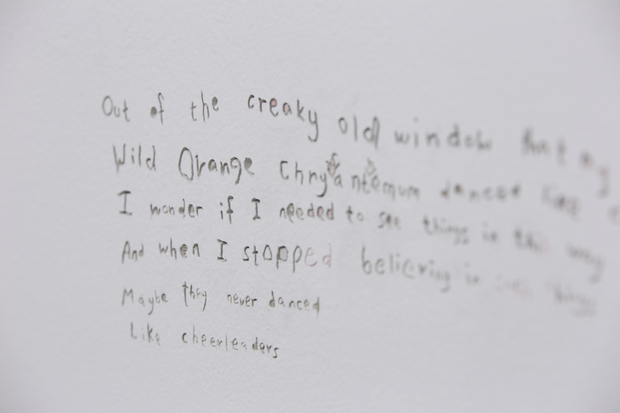 Out of the creaky old window that my
Wild Orange Chrysantemum danced like
I wonder if I needed to see things in this way
And when I stopped believing in such things
Maybe they never danced
Like cheerleaders